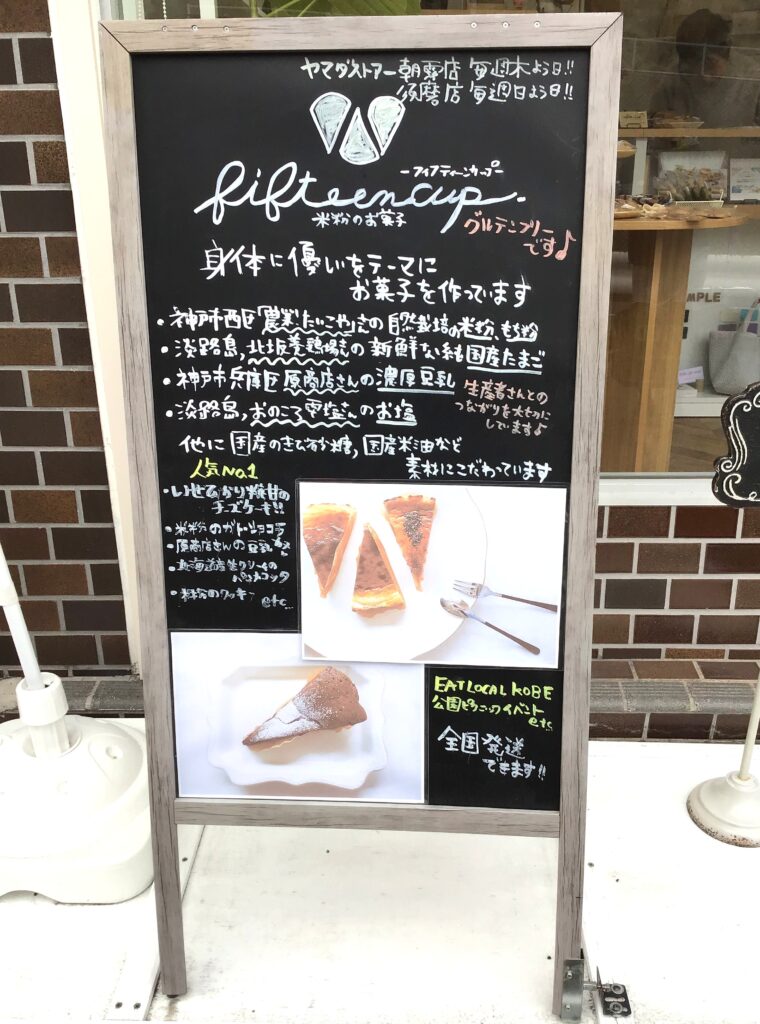 ヤマダストアー朝霧店 毎週木よう日!!
須磨店 毎週日よう日!!
fifteencup.
-フィフティーンカップ-
米粉のお菓子
グルテンフリー
です♪
身体に優しいをテーマに
お菓子を作っています
・神戸市西区「農業たいこや」さんの自然栽培の米粉、もち粉
・淡路島,北坂養鶏場さんの新鮮な純国産たまご
・神戸市兵庫区原商店さんの濃厚豆乳
・淡路島,おのころ雫塩さんのお塩
生産者さんとの
つながりを大切に
しています♪
他に国産のきび砂糖,国産米油など
素材にこだわっています
人気No.1
・いせひかり糀甘の
チーズケーキ!!
・米粉のガトーショコラ
・原商店さんの豆乳
・北海道産生クリームの
パンナコッタ
・米粉のクッキー etc...
EAT LOCAL KOBE
公園ピクニックイベント
etc
全国発送
できます!!
MPLE